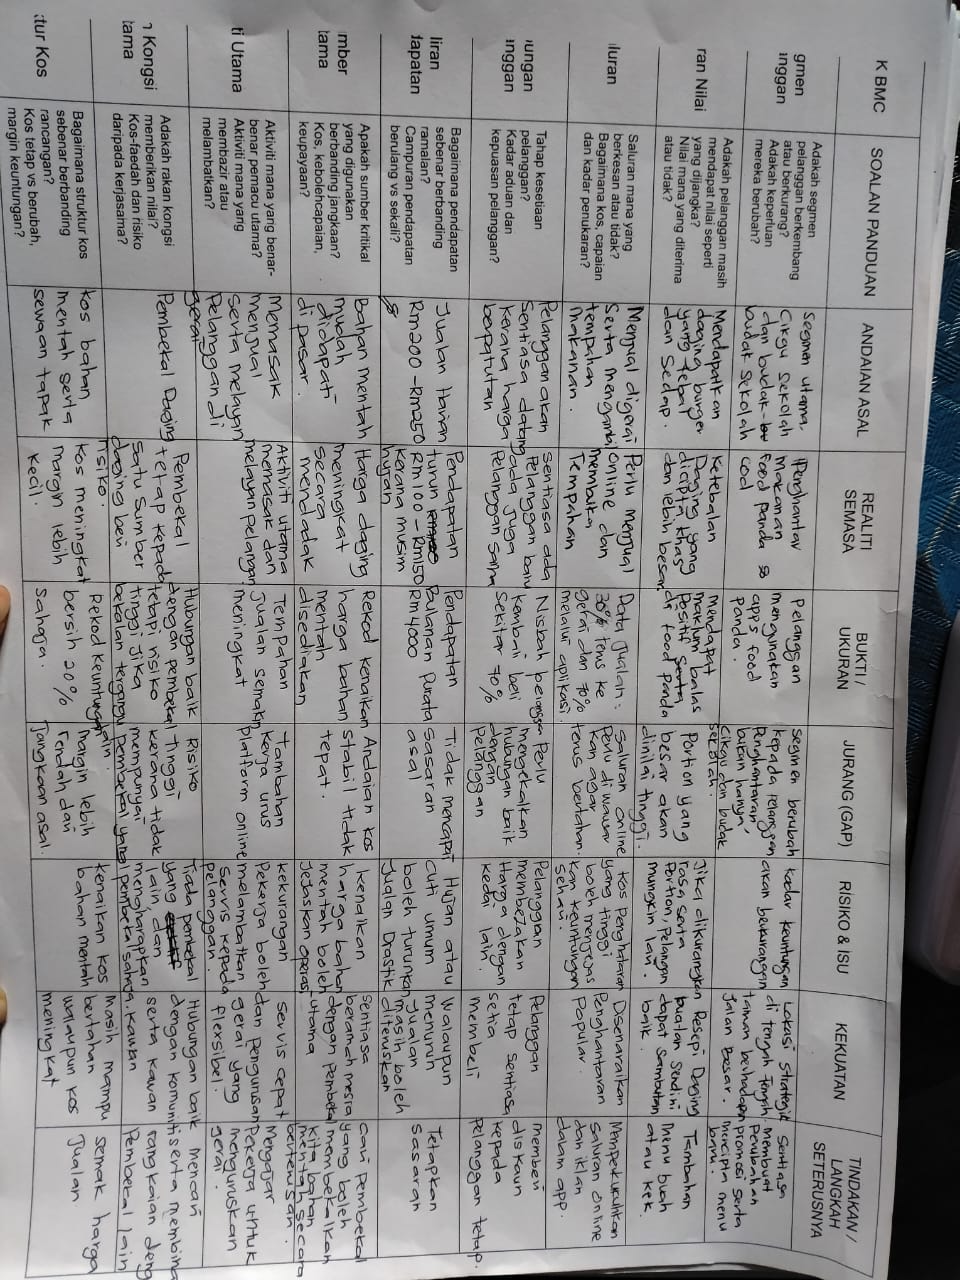 K BMC
SOALAN PANDUAN
ANDAIAN ASAL
REALITI
SEMASA
BUKTI /
UKURAN
JURANG (GAP)
RISIKO & ISU
KEKUATAN
TINDAKAN /
LANGKAH
SETERUSNYA
gmen
nggan
Adakah segmen
pelanggan berkembang
atau berkurang?
Adakah keperluan
mereka berubah?
Segmen utama,
Cikgu sekolah
dan budak-
budak sekolah
Penghantar
makanan
food panda
Pelanggan
mengunakan
apps food
Panda.
segmen berubah
kepada pelanggan
Penghantaran
bukan hanya
Cikgu dan budak
sekolah.
kadar keuntungan
akan berkurangan
Lokasi strategik
di tengah tengah
taman berhadapan
Jalan besar.
Sentiasa
membuat
Perubahan
promosi serta
mencipta menu
baru.
ran Nilai
Adakah pelanggan masih
mendapat nilai seperti
yang dijangka?
Nilai mana yang diterima
atau tidak?
Mendapatkan
daging burger
yang tebal
dan sedap.
Ketebalan
Daging yang
dicipta khas
dan lebih besar
mendapat
maklum balas
Positif
di food Panda
Portion yang
besar akan
dinilai tinggi.
Jika dikurangkan
rasa serta
Portion, Pelanggan
mungkin lari.
Resepi Daging
buatan sendiri
dapat sambutan
baik.
Tambahan
menu buah
atau kek.
luran
Saluran mana yang
berkesan atau tidak?
Bagaimana kos, capaian
dan kadar penukaran?
Menjual digerai
Serta mengambil
tempahan
makanan.
Perlu menjual
Online dan
membuka
Tempahan
Data Jualan:
30% terus ke
gerai dan 70%
melalui aplikasi.
Saluran online
Perlu di
kan agar
terus bertahan.
kos Penghataran
yang tinggi
boleh menjejas
kan keuntungan
sehari.
Disenaraikan
Penghantaran
Popular.
Memperkukuhkan
Saluran online
dan iklan
dalam app.
ungan
nggan
Tahap kesetiaan
pelanggan?
Kadar aduan dan
kepuasan pelanggan?
Pelanggan akan
Sentiasa datang
kerana harga
berpatutan
sentiasa ada
Pelanggan baru
dan juga
Pelanggan sama
Nisbah pelanggan
kembali beli
Sekitar 70%
Perlu
mengekalkan
hubungan baik
dengan
Pelanggan
Pelanggan
membezakan
Harga dengan
kedai lain.
Pelanggan
tetap sentiasa
setia
membeli
memberi
diskaun
kepada
Pelanggan tetap.
liran
dapatan
Bagaimana pendapatan
sebenar berbanding
ramalan?
Campuran pendapatan
berulang vs sekali?
Jualan Harian
RM200-RM250
Pendapatan
turun
RM100-RM150
kerana musim
hujan
Pendapatan
Bulanan Purata
RM4000
Tidak mencapai
sasaran
asal
Hujan atau
Cuti umum
boleh turunkan
Jualan Drastik
Walaupun
menurun
Jualan
masih boleh
diteruskan
Tetapkan
Sasaran
mber
tama
Apakah sumber kritikal
yang digunakan
berbanding jangkaan?
Kos, kebolehcapaian,
keupayaan?
Bahan mentah
mudah
didapati
di pasar.
Harga daging
meningkat
secara
mendadak
Rekod kenaikan
harga bahan
mentah
disediakan
Andaian kos
stabil tidak
tepat.
kenaikan
harga bahan
mentah boleh
Jejaskan operasi
sentiasa
beramah mesra
dengan pembekal
utama
cari Pembekal
yang boleh
membekalkan
kita bahan
mentah secara
berterusan.
ti Utama
Aktiviti mana yang benar-
benar pemacu utama?
Aktiviti mana yang
membazir atau
melambatkan?
Memasak
menjual
serta melayan
Pelanggan di
gerai
Aktiviti utama
memasak dan
melayan pelanggan
Tempahan
Jualan semakin
meningkat
tambahan
kerja urus
platform online
kekurangan
Pekerja boleh
melambatkan
servis kepada
Pelanggan.
Servis cepat
dan pengurusan
gerai yang
flexsibel.
Mengajar
Pekerja untuk
menguruskan
gerai.
Kongsi
tama
Adakah rakan kongsi
memberikan nilai?
Kos-faedah dan risiko
daripada kerjasama?
Pembekal Daging
Pembekal
tetap kepada
satu sumber
daging beri
risiko.
Hubungan baik
dengan pembekal
tetapi risiko
tinggi jika
bekalan terganggu
Risiko
Tinggi
kerana tidak
mempunyai
pembekal yang
lain.
Tiada pembekal
yang
lain dan
mengharapkan
pembekal sama.
Hubungan baik
dengan komuniti
serta kawan
kawan
mencari
serta membina
rangkaian deng
Pembekal lain
tur Kos
Bagaimana struktur kos
sebenar berbanding
rancangan?
Kos tetap vs berubah,
margin keuntungan?
kos bahan
mentah serta
sewaan tapak
kos meningkat
margin lebih
kecil.
Rekod keuntungan
bersih 20%
Sahaja.
margin lebih
rendah dari
Jangkaan asal.
kenaikan kos
bahan mentah
Masih mampu
bertahan
walaupun kos
meningkat
semak harga
Jualan